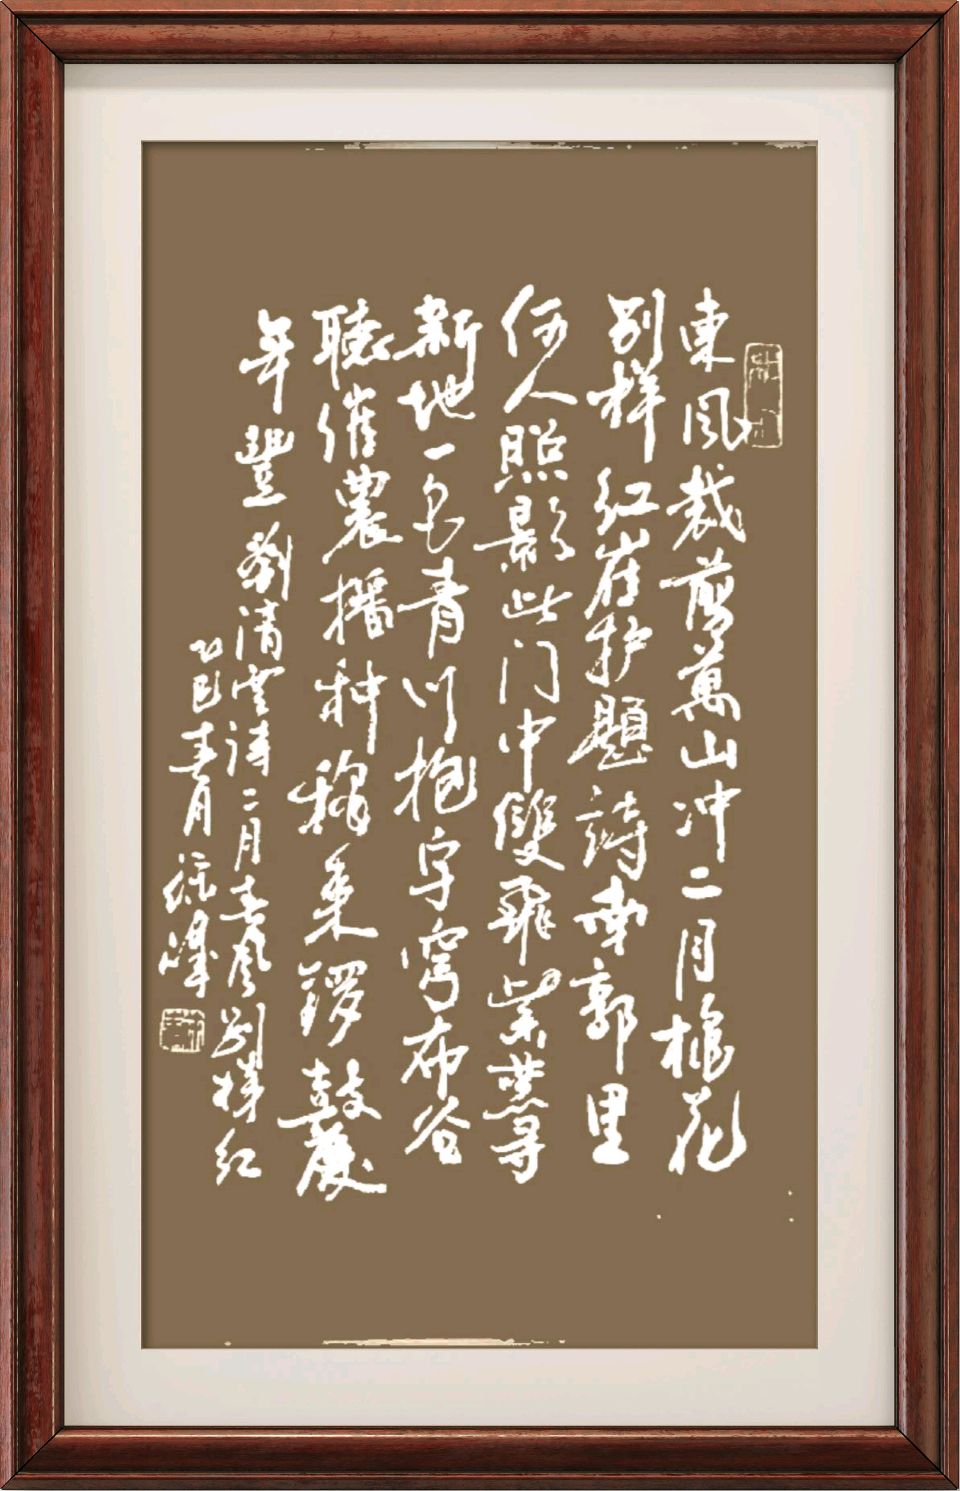 東風裁剪萬山冲二月桃花
别样红崔护題詩南郭里
何人照影此门中雙飛紫燕寻
新地一色青川抱宇穹布谷
聽催農播种鑼鼓慶
年豐 劉清雲詩二月春风别樣红
乙巳春月 徐峰